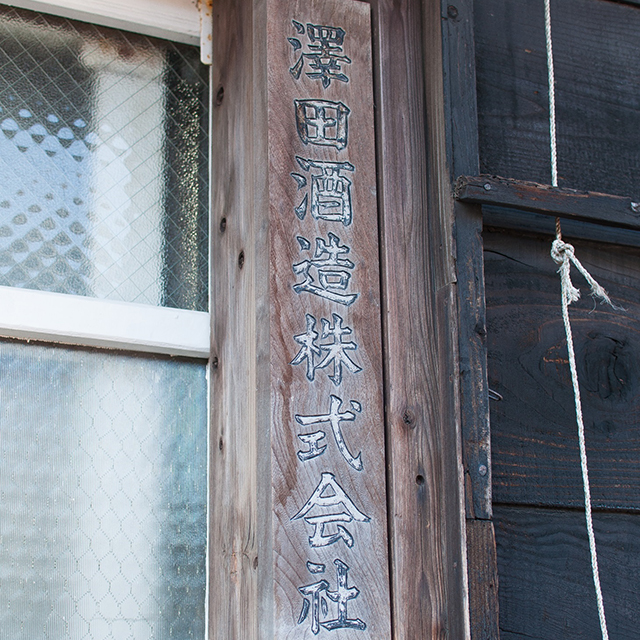 澤田酒造株式会社